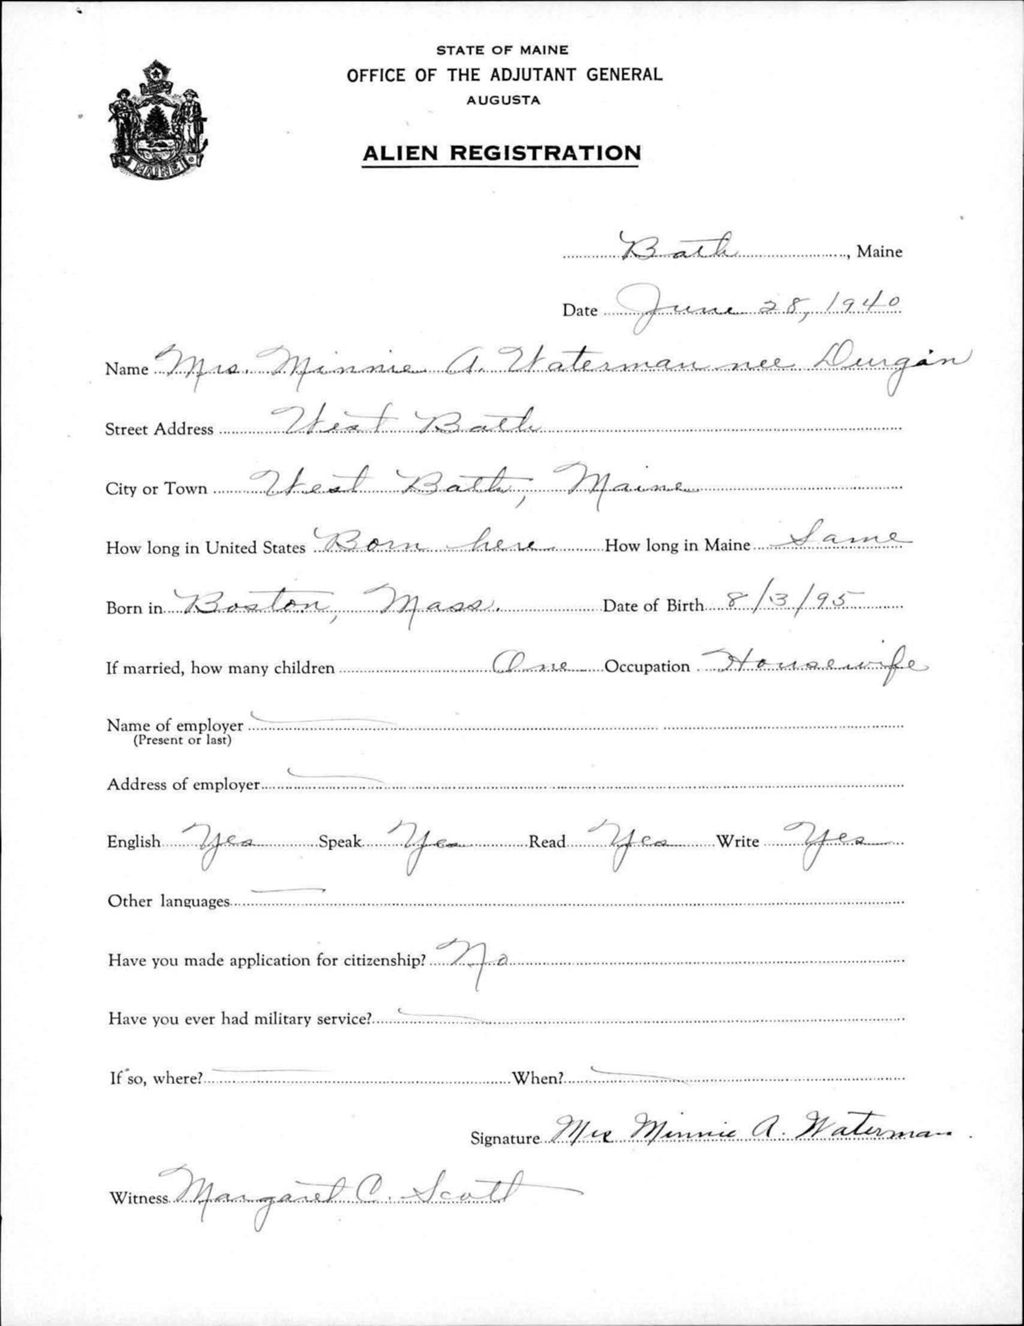 STATE OF MAINE
OFFICE OF THE ADJUTANT GENERAL
AUGUSTA
ALIEN REGISTRATION
MAINE
Bath, Maine
Date June 28, 1940
Name Mrs. Minnie A. Waterman nee Durgan
Street Address West Bath
City or Town West Bath, Maine
How long in United States Born here How long in Maine Same
Born in Boston, Mass. Date of Birth 8/3/95
If married, how many children One Occupation Housewife
Name of employer —
(Present or last)
Address of employer —
English Yes Speak Yes Read Yes Write Yes
Other languages —
Have you made application for citizenship? No
Have you ever had military service? —
If so, where? — When? —
Signature Mrs Minnie A. Waterman.
Witness Margaret C. Scott